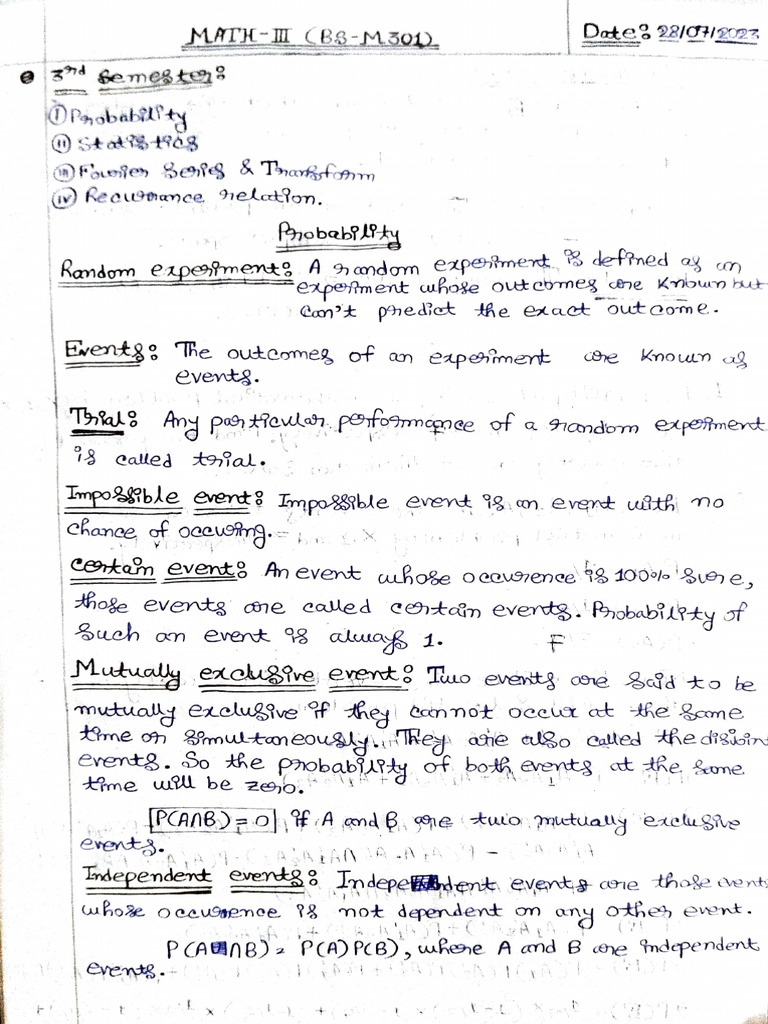 MATH-III (BS-M301)
Date: 28/07/2023
3rd Semester:
(i) Probability
(ii) Statistics
(iii) Fourier Series & Transform
(iv) Recurrance relation.
Probability
Random experiment: A random experiment is defined as an
experiment whose outcomes are known but
can't predict the exact outcome.
Events: The outcomes of an experiment are known as
events.
Trial: Any particular performance of a random experiment
is called trial.
Impossible event: Impossible event is an event with no
chance of occuring.
Certain event: An event whose occurence is 100% sure,
those events are called certain events. Probability of
such an event is always 1.
F
Mutually exclusive event: Two events are said to be
mutually exclusive if they cannot occur at the same
time or simultaneously. They are also called the disjoint
events. So the probability of both events at the same
time will be zero.
P(A∩B) = 0 if A and B are two mutually exclusive
events.
Independent events: Independent events are those events
whose occurrence is not dependent on any other event.
P(A∩B) = P(A)P(B), where A and B are independent
events.